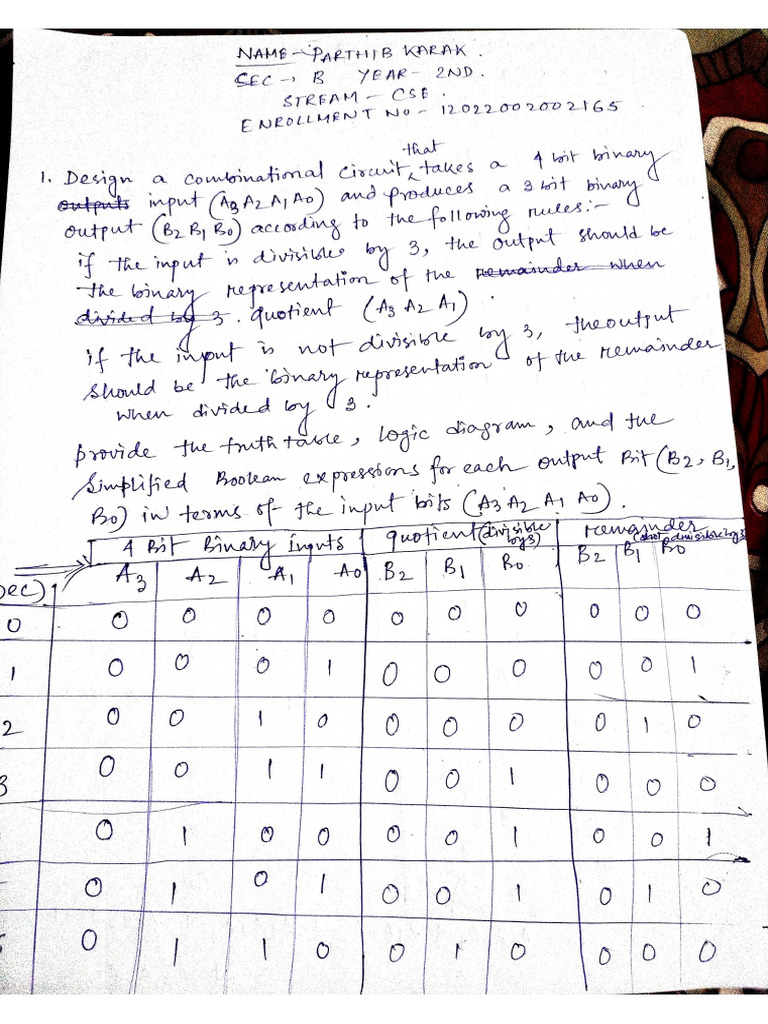 NAME - PARTHIB KARAK.
SEC → B YEAR - 2ND.
STREAM - CSE.
ENROLLMENT NO - 12022002002165
that
1. Design a combinational circuit ^ takes a 4 bit binary
outputs input (A3 A2 A1 A0) and produces a 3 bit binary
output (B2 B1 B0) according to the following rules:-
if the input is divisible by 3, the output should be
the binary representation of the remainder when
divided by 3. quotient (A3 A2 A1).
if the input is not divisible by 3, the output
should be the binary representation of the remainder
when divided by 3.
provide the truth table, logic diagram, and the
simplified Boolean expressions for each output Bit (B2, B1,
B0) in terms of the input bits (A3 A2 A1 A0).
4 Bit Binary Inputs quotient (divisible by 3) remainder
Dec) A3 A2 A1 A0 B2 B1 B0 B2 B1 B0
0 0 0 0 0 0 0 0 0 0 0
1 0 0 0 1 0 0 0 0 0 1
2 0 0 1 0 0 0 0 0 1 0
3 0 0 1 1 0 0 1 0 0 0
0 1 0 0 0 0 1 0 0 1
0 1 0 1 0 0 1 0 1 0
0 1 1 0 0 1 0 0 0 0